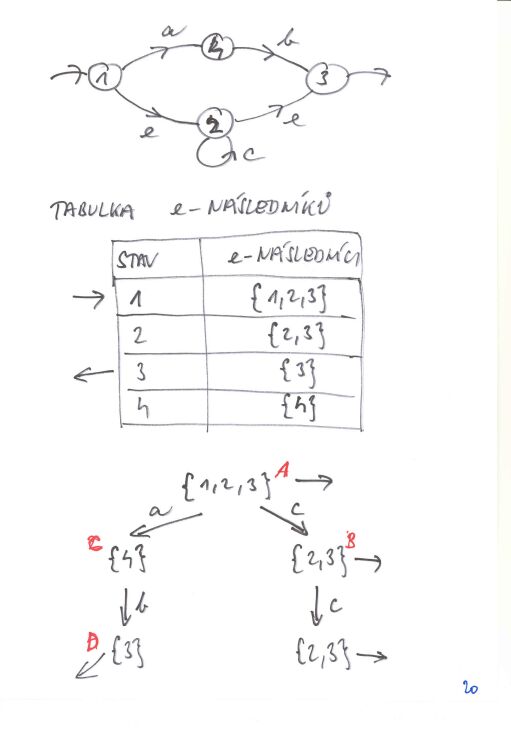 a
b
4
1
3
2
e
e
c
TABULKA e-NÁSLEDNÍKŮ
STAV e-NÁSLEDNÍCI
1 {1,2,3}
2 {2,3}
3 {3}
4 {4}
{1,2,3} A
a c
C {4} {2,3} B
b c
D {3} {2,3}
20